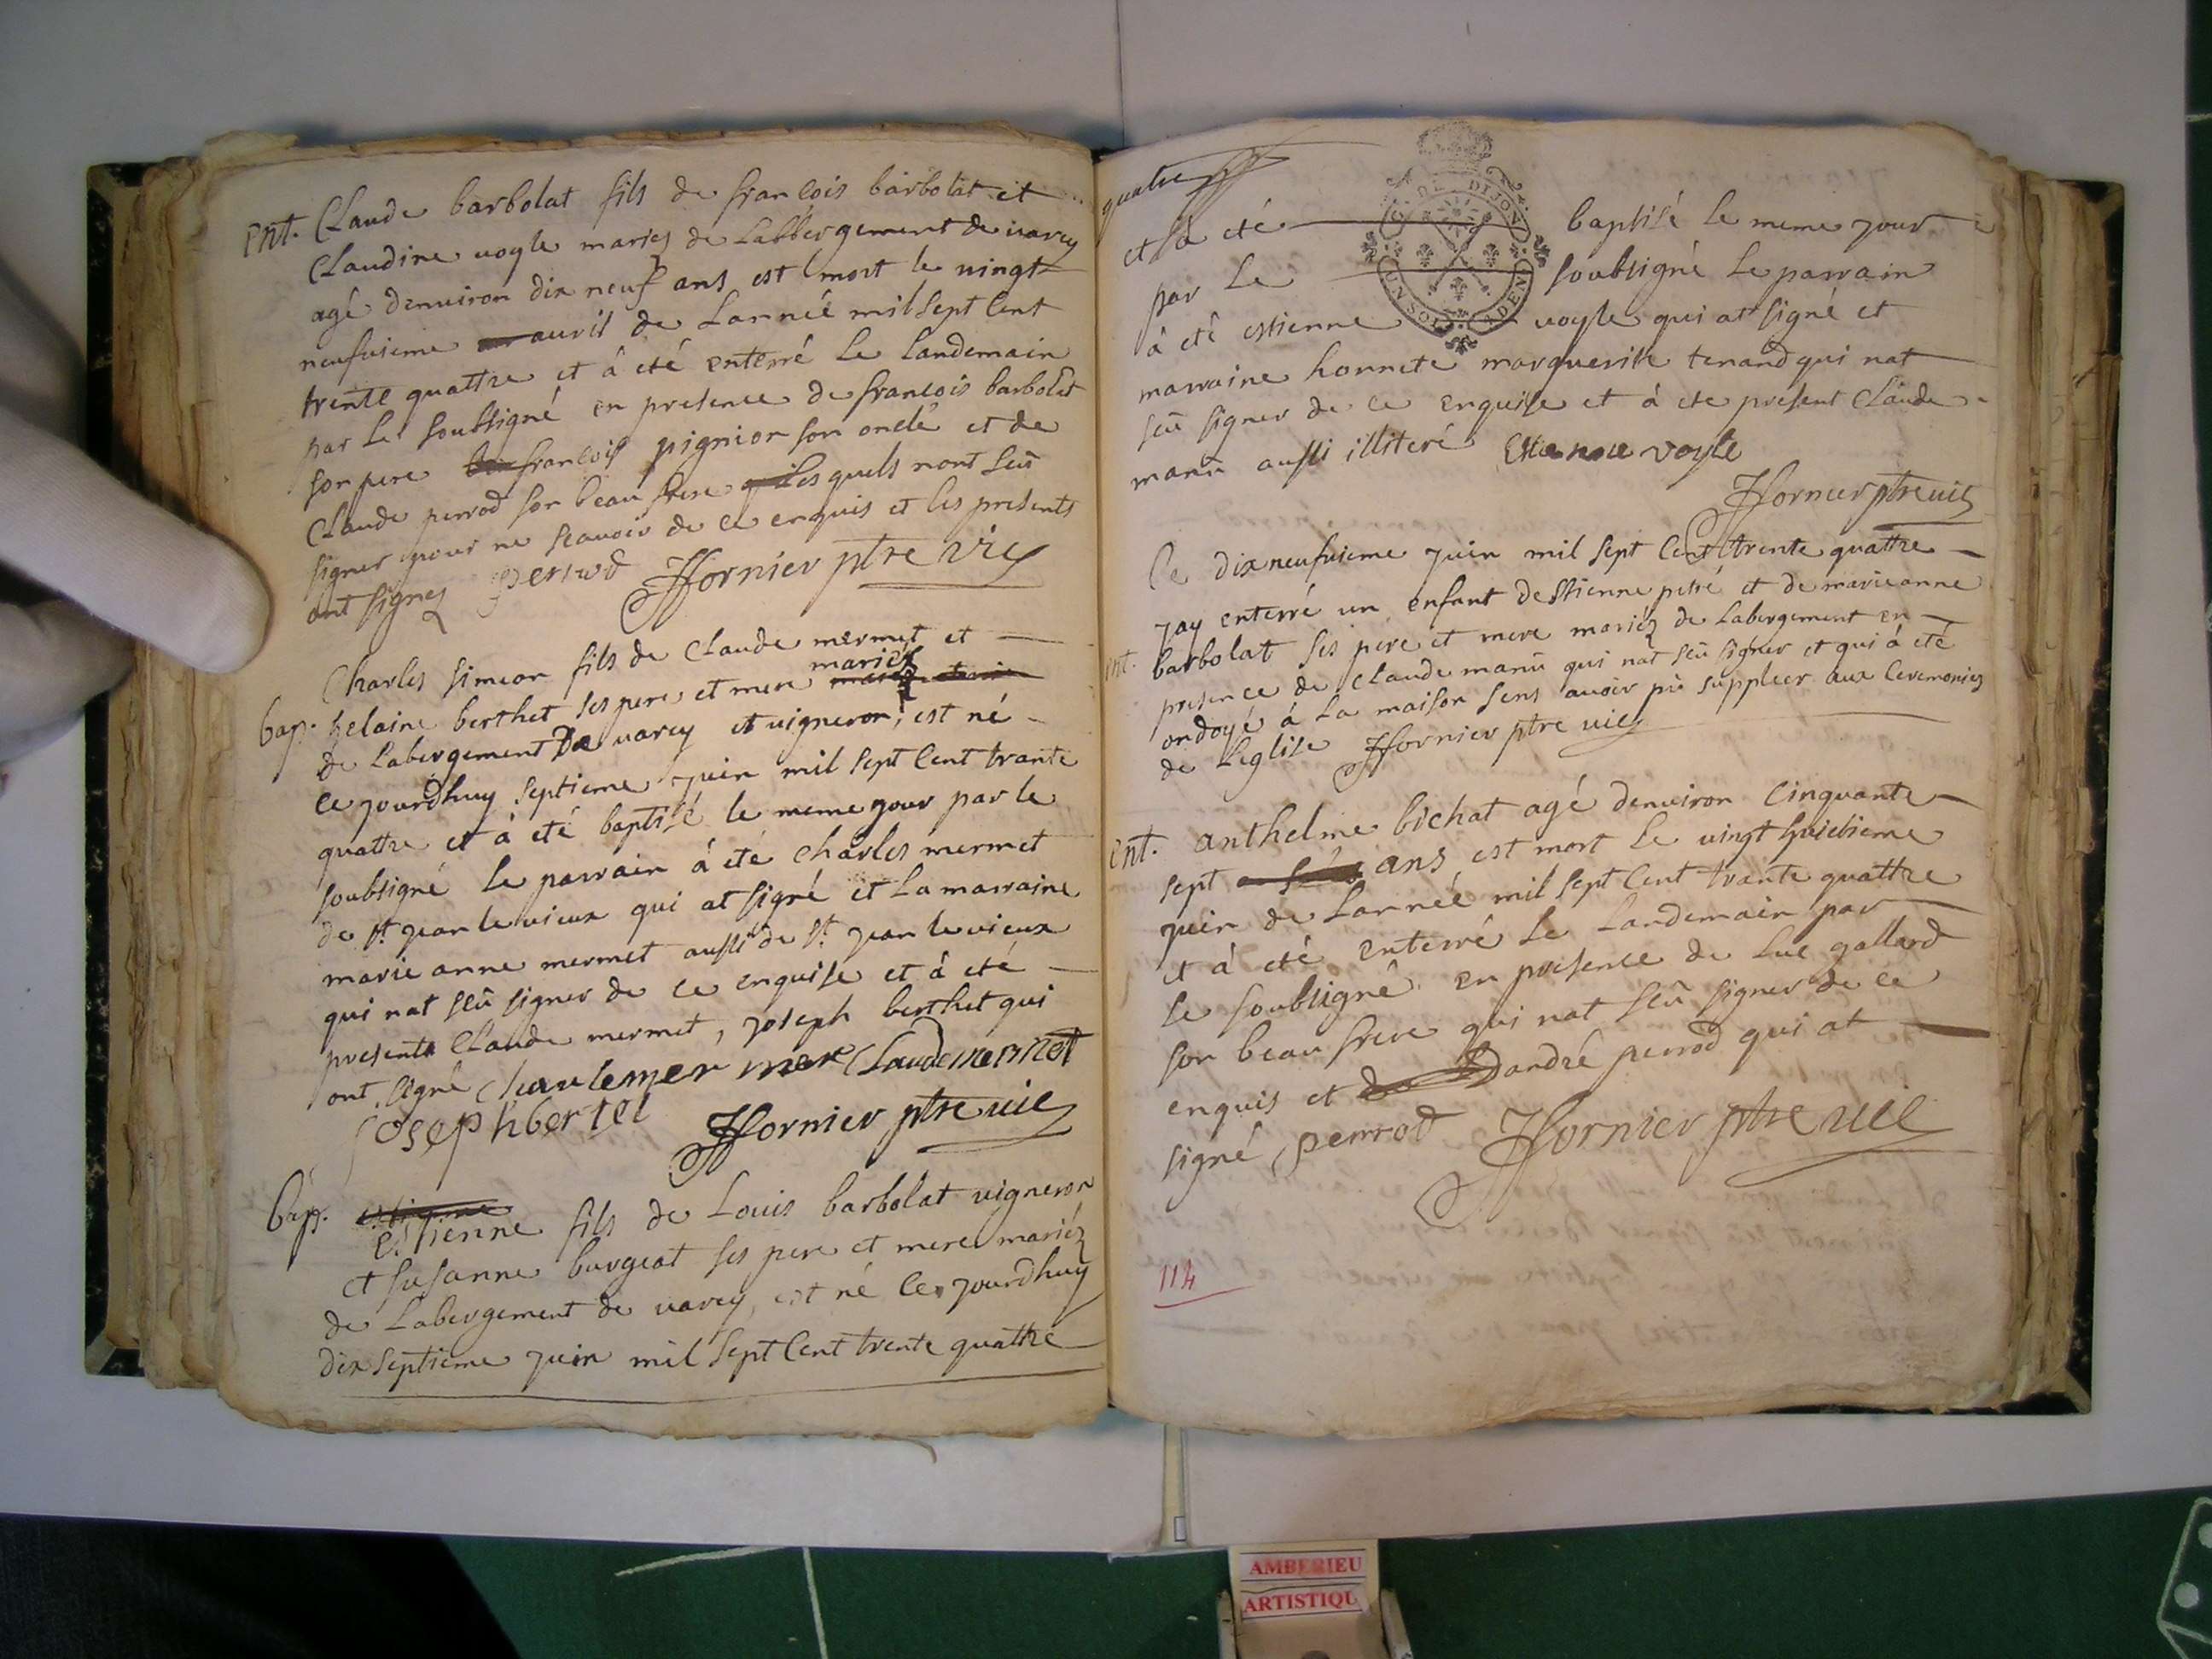 Ent. Claude barbolat fils de francois barbolat et
Claudine uogle mariez de Labbergement de uarey
agé denuiron dix neuf ans est mort le uingt
neufuieme auril de Lannéé mil sept Cent
trente quattre et à eté enterré Le Landemain
par Le soubsigné en presence de francois barbolat
son pere francois pignion son oncle et de
Claude perrod son beau frere lesquels nont seû
signer pour ne scauoir de ce enquis et les presents
ont signez perrod Hornier ptre vic
Charles simeon fils de Claude mermet et
mariez
bap. helaine berthet ses pere et mere
de Labergement De uarey et uigneron, est né
ce jourdhuy septieme juin mil sept Cent trante
quattre et à eté baptisé le meme jour par le
soubsigné le parrain à eté charles mermet
de st. jean le uieux qui at signé et La marraine
marie anne mermet aussi de st. jean le uieux
qui nat seû signer de ce enquise et à eté
presents Claude mermet, joseph berthet qui
ont signé charle mer mer Claude mermet
joseph bertet Hornier ptre uic
bap. estienne
Etienne fils de Louis barbolat uigneron
et susanne burgeat ses pere et mere mariéz
de Labergement de uarey, est né ce jourdhuy
dix septieme juin mil sept Cent trente quattre
quatre
et à eté baptisé le meme jour
par Le soubsigné Le parrain
à eté estienne uogle qui at signé et
marraine honnete marguerite tenand qui nat
seû signer de ce enquise et à ete present Claude
manû aussi illiteré Estienne vogle
Hornier ptre uic
DE DIJON
UN SOL 4 DEN
Ce dixneufuieme juin mil sept Cent trente quattre
jay enterré un enfant destienne petré et de marieanne
ent. barbolat ses pere et mere mariéz de Labergement en
presence de Claude manû qui nat seû signer et qui à eté
ondoyé à La maison sens auoir pû suppleer aux Ceremonies
de Leglise Hornier ptre uic
ent. anthelme bichat agé denuiron Cinquante
sept ans est mort Le uingt huictieme
juin de Lannéé mil sept Cent trante quattre
et à eté enterré Le Landemain par
le soubsigné en presence de Luc gallard
son beau frere qui nat seû signer de ce
enquis et Dandré perrod qui at
signé perrod Hornier ptre uic
114
AMBERIEU
ARTISTIQU